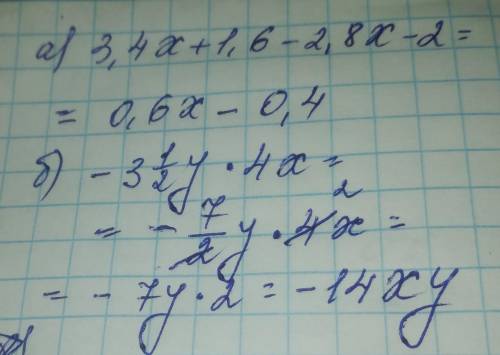 а) 3,4x+1,6-2,8x-2=
= 0,6x - 0,4
б) -3 1/2 y · 4x =
= - 7/2 y · 4x = 2
= - 7y · 2 = -14xy